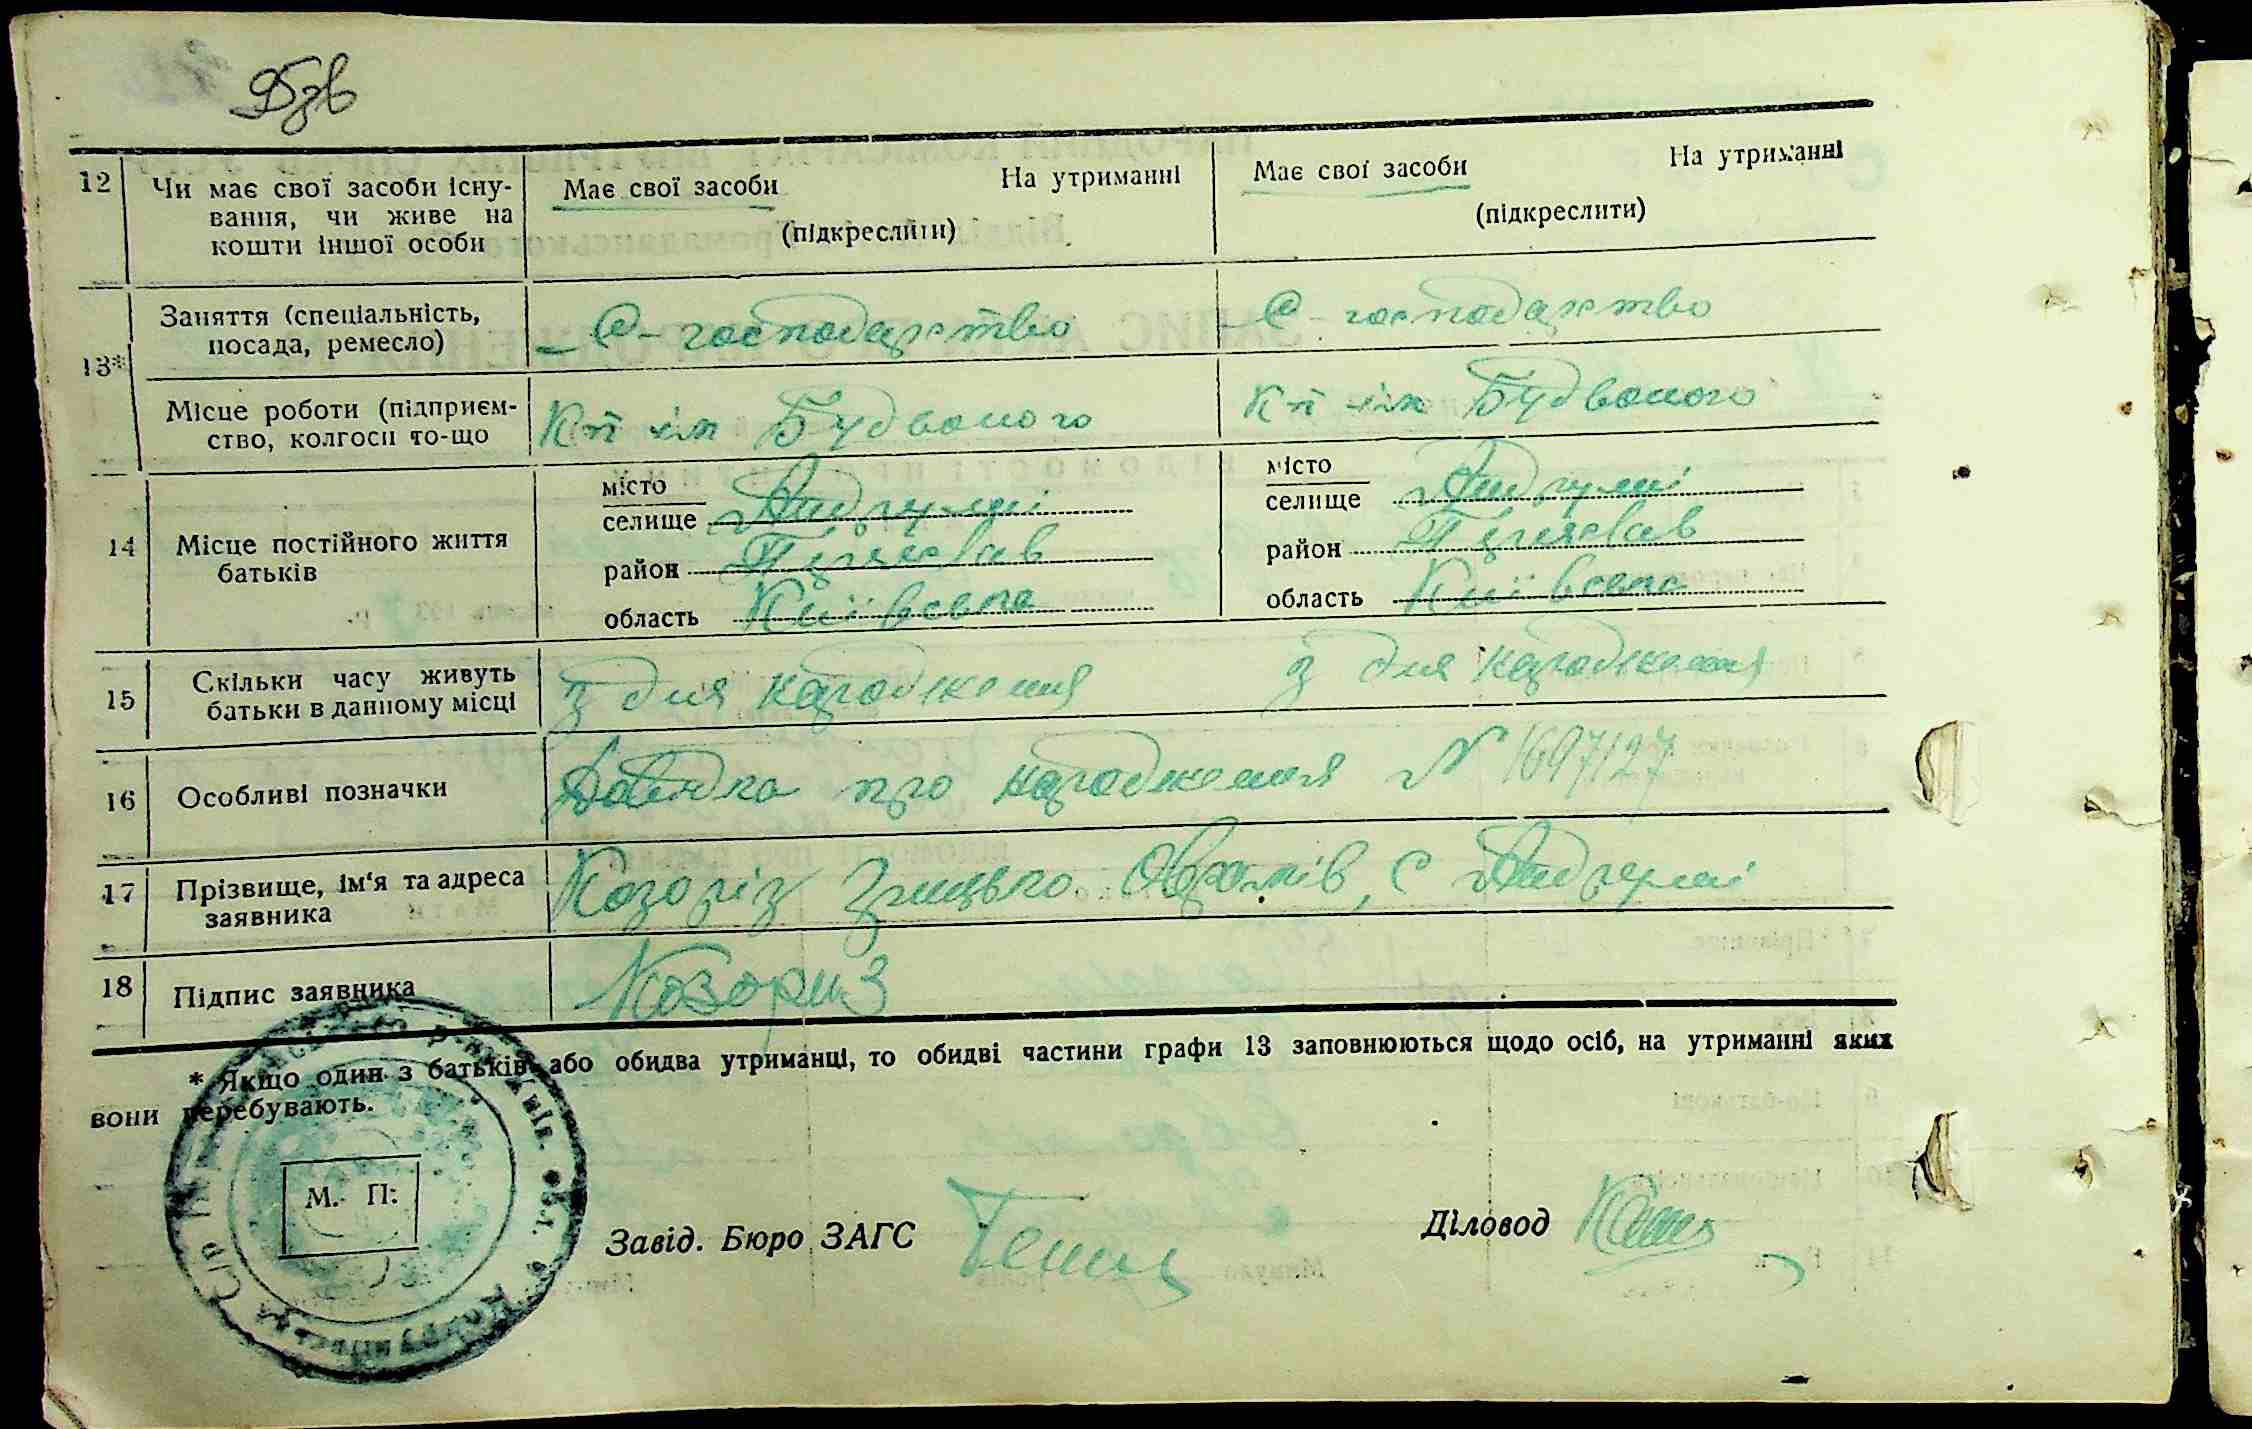 12 Чи має свої засоби існу-
вання, чи живе на
кошти іншої особи
Має свої засоби На утриманні
(підкреслити)
Має свої засоби На утриманні
(підкреслити)
13*
Заняття (спеціальність,
посада, ремесло)
С-господарство
С-господарство
Місце роботи (підприєм-
ство, колгосп то-що
Кп ім Будьоного
Кп ім Будьоного
14 Місце постійного життя
батьків
місто
селище Андруші
район Переяслав
область Київська
місто
селище Андруші
район Переяслав
область Київська
15 Скільки часу живуть
батьки в данному місці
з дня народження
з дня народження
16 Особливі позначки
Довідка про народження N 1697127
17 Прізвище, ім'я та адреса
заявника
Козоріз Грицько Овромів, с Андруші
18 Підпис заявника
Козориз
* Якщо один з батьків або обидва утриманці, то обидві частини графи 13 заповнюються щодо осіб, на утриманні яких
вони перебувають.
М. П.
Завід. Бюро ЗАГС
Діловод